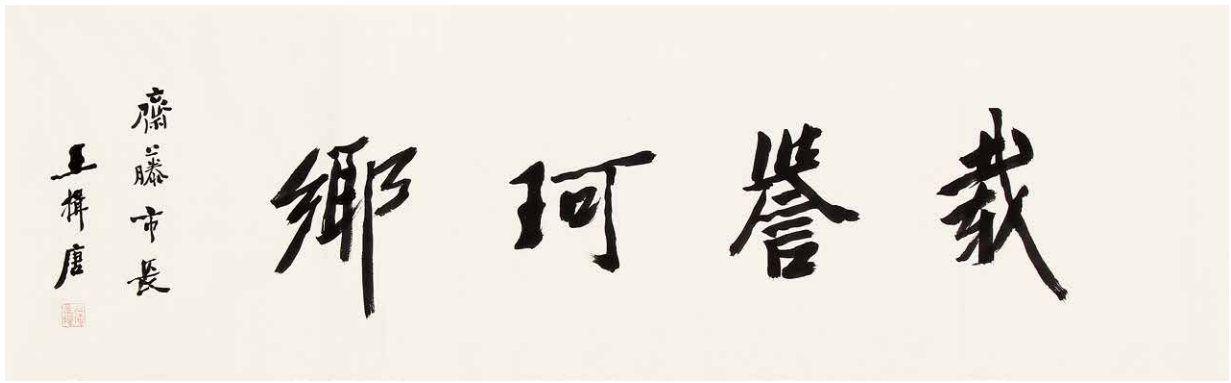 載譽珂鄉
齋藤市長
王揖唐